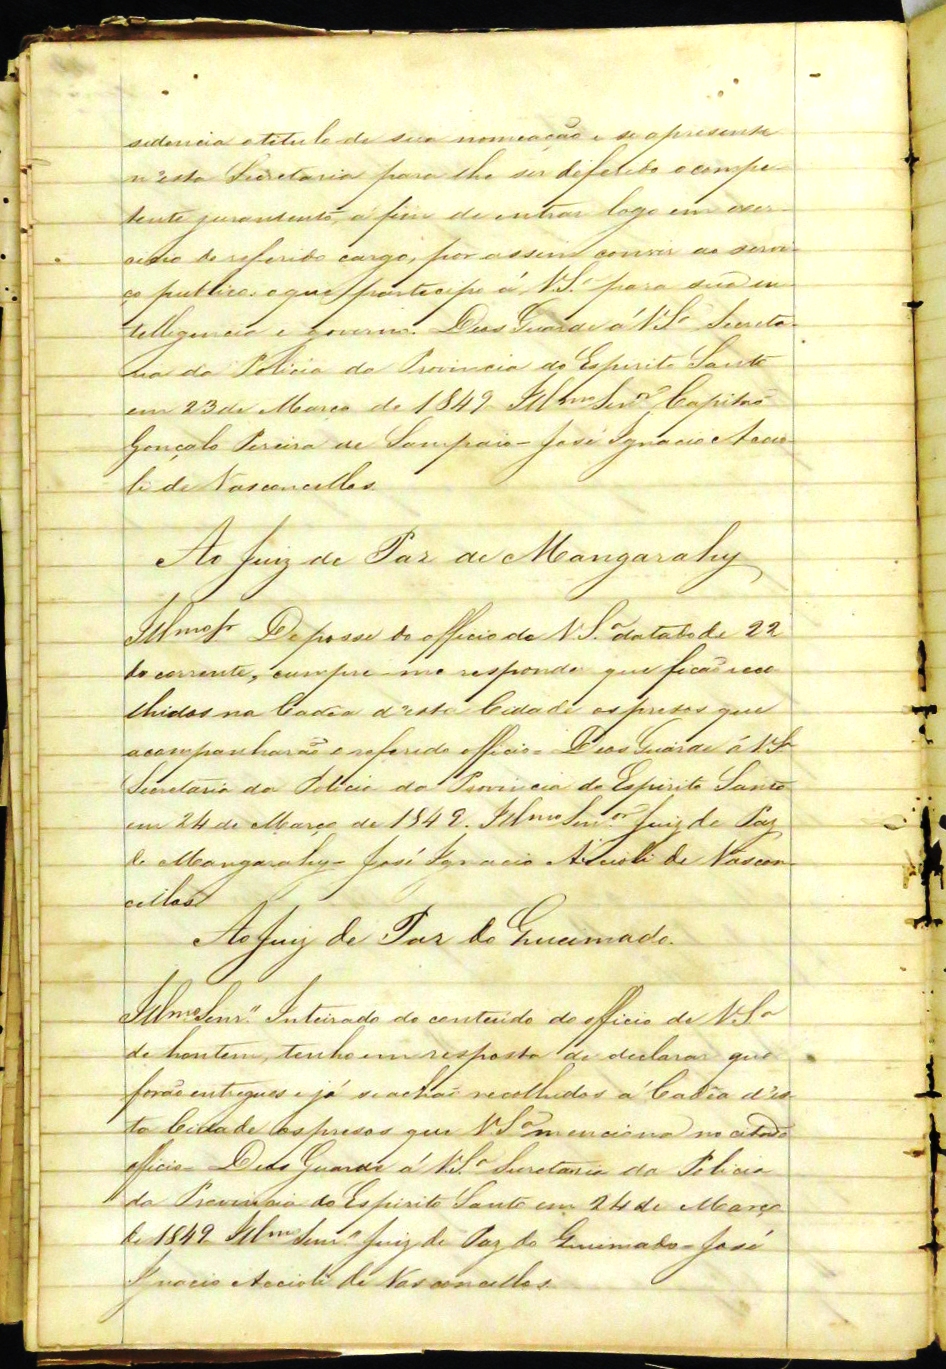 sidencia o titulo de sua nomeação e se apresente
n'esta Secretaria para lhe ser deferido o compe-
tente juramento, a fim de entrar logo em exer-
cicio do referido cargo, por assim convir ao servi-
ço publico. o que participo á V.S.ª para sua in-
telligencia e governo. Deos Guarde a V.Sª Secreta-
ria da Policia da Provincia do Espirito Santo
em 23 de Março de 1849. Illmo Senr. Capitão
Gonçalo Pereira de Sampaio - José Ignacio Accio-
li de Vasconcellos
Ao Juiz de Paz de Mangarahy
Illmo Sr De posse do officio de V.S.ª datado de 22
do corrente, cumpre-me responder que ficão reco
lhidos na Cadêa d'esta Cidade os presos que
acompanharão o referido officio - Deos Guarde á V.Sª
Secretaria da Policia da Provincia do Espirito Santo
em 24 de Março de 1849. Illmo Senr. Juiz de Paz
de Mangarahy - José Ignacio Accioli de Vascon-
cellos
Ao Juiz de Paz do Queimado.
Illmo Senr. Inteirado do conteúdo do officio de V.S.ª
de hontem, tenho em resposta de declarar que
forão entregues e já se achão recolhidos a Cadêa d'es
ta Cidade os presos que V.S.ª menciona no citado
officio - Deos Guarde á V.S.ª Secretaria da Policia
da Provincia do Espirito Santo em 24 de Março
de 1849 Illmo Senr. Juiz de Paz do Queimado - José
Ignacio Accioli de Vasconcellos.